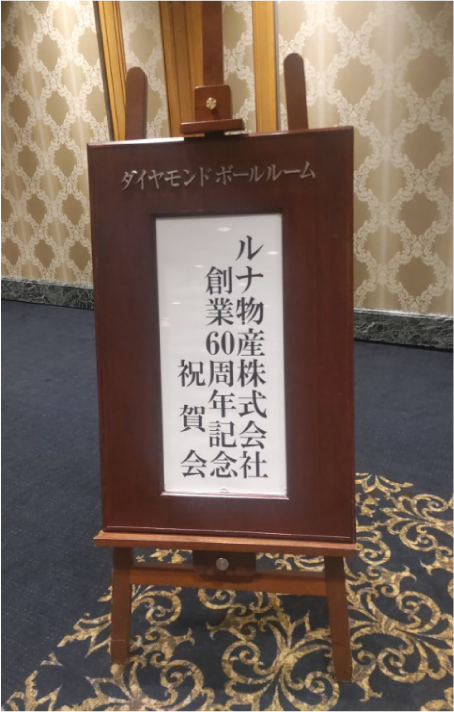 ダイヤモンドボールルーム
ルナ物産株式会社
創業60周年記念
祝賀会